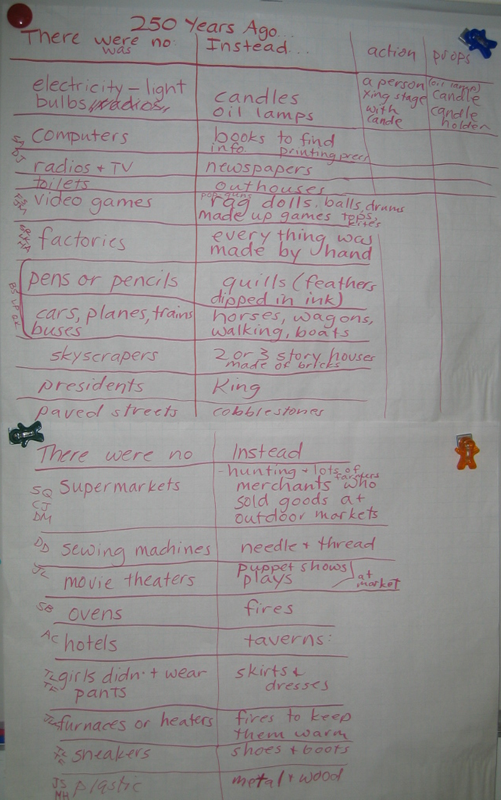 250 Years Ago...
There were no Instead... action props
was
electricity - light candles a person (oil lamps)
bulbs oil lamps xing stage candle
with candle
cande holder
computers books to find
info printing press
radios + TV newspapers
toilets outhouses
video games rag dolls, balls, drums
made up games tops,
kites
factories every thing was
made by hand
pens or pencils quills (feathers
dipped in ink)
cars, planes, trains horses, wagons,
buses walking, boats
skyscrapers 2 or 3 story houses
made of bricks
presidents King
paved streets cobblestones
There were no Instead
- hunting + lots of
farmers
SQ Supermarkets merchants who
CJ sold goods at
DM outdoor markets
DD sewing machines needle + thread
JL movie theaters puppet shows
plays at
market
SB ovens fires
AC hotels taverns:
girls didn't wear skirts &
pants dresses
furnaces or heaters fires to keep
them warm
sneakers shoes + boots
JS plastic metal + wood
NH